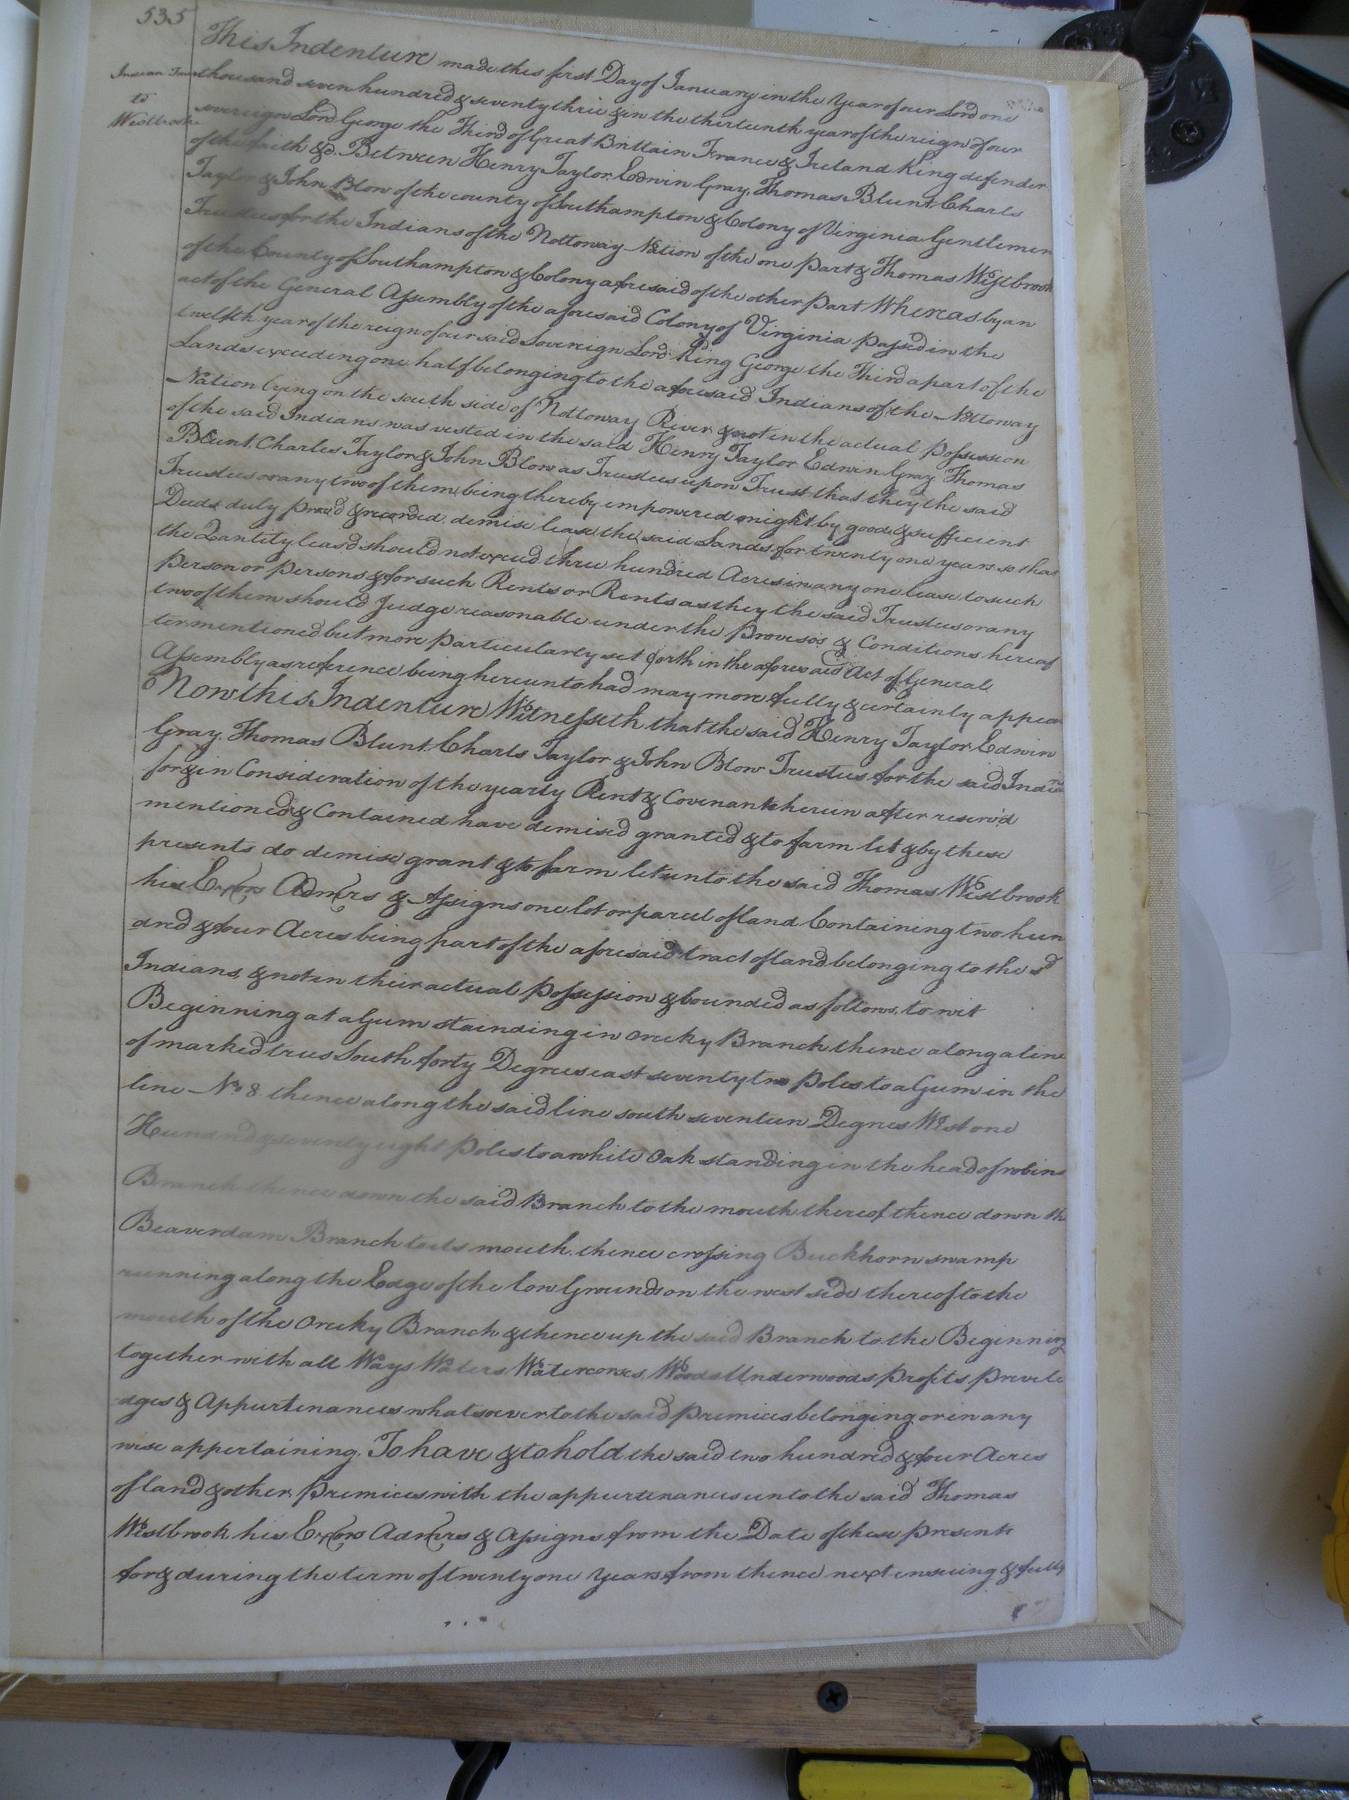 535
Indian Trus
to
Westbrook
This Indenture made this first Day of January in the Year of our Lord one
thousand seven hundred & seventy three & in the thirteenth year of the reign of our
sovereign Lord George the Third of Great Brittain France & Ireland King defender
of the faith &c. Between Henry Taylor Edwin Gray Thomas Blunt Charls
Taylor & John Blow of the county of Southampton & Colony of Virginia Gentlemen
Trustees for the Indians of the Nottoway Nation of the one part & Thomas Westbrook
of the County of Southampton & Colony aforesaid of the other part Whereas by an
act of the General Assembly of the aforesaid Colony of Virginia passed in the
twelfth year of the reign of our said Sovereign Lord King George the Third a part of the
Lands exceeding one half belonging to the aforesaid Indians of the Nottoway
Nation lying on the south side of Nottoway River & not in the actual possession
of the said Indians was vested in the said Henry Taylor Edwin Gray Thomas
Blunt Charles Taylor & John Blow as Trustees upon Trust that they the said
Trustees or any two of them being thereby empowered might by good & sufficient
Deeds duly proved & recorded demise lease the said Lands for twenty one years so that
the Quantity leas'd should not exceed three hundred Acres in any one lease to such
person or persons & for such Rents or Rents as they the said Trustees or any
two of them should Judge reasonable under the provisos & Conditions hereaf
ter mentioned but more particularly set forth in the aforesaid Act of General
Assembly as reference being hereunto had may more fully & certainly appear
Now this Indenture Witnesseth that the said Henry Taylor Edwin
Gray Thomas Blunt Charls Taylor & John Blow Trustees for the said Indians
for & in Consideration of the yearly Rent & Covenants herein after reserv'd
mentioned & Contained have demised granted & to farm let & by these
presents do demise grant & to farm let unto the said Thomas Westbrook
his Exors Admrs & Assigns one lot or parcel of land Containing two hun
dred & four Acres being part of the aforesaid tract of land belonging to the sd
Indians & not in their actual possession & bounded as follows, to wit
Beginning at a Gum standing in creeky Branch thence along a line
of marked trees South forty Degrees east seventy two poles to a Gum in the
line No 8 thence along the said line south seventeen Degrees West one
Hundred & seventy eight poles to a white Oak standing in the head of robins
Branch thence down the said Branch to the mouth thereof thence down the
Beaverdam Branch to its mouth thence crossing Buckhorn swamp
running along the Edge of the low Grounds on the west side thereof to the
mouth of the creeky Branch & thence up the said Branch to the Beginning
together with all Ways Waters Watercorses, Woods Underwoods profits previle
edges & Appurtenances whatsoever to the said premices belonging or in any
wise appertaining. To have & to hold the said two hundred & four Acres
of land & other premices with the appurtenances unto the said Thomas
Westbrook his Exors Admrs & Assigns from the Date of these presents
for & during the term of twenty one Years from thence next ensuing & fully